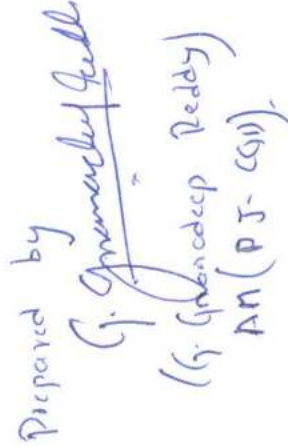 Prepared by
G. Gnanadeep Reddy
(G. Gnanadeep Reddy)
AM (PJ- CGD).